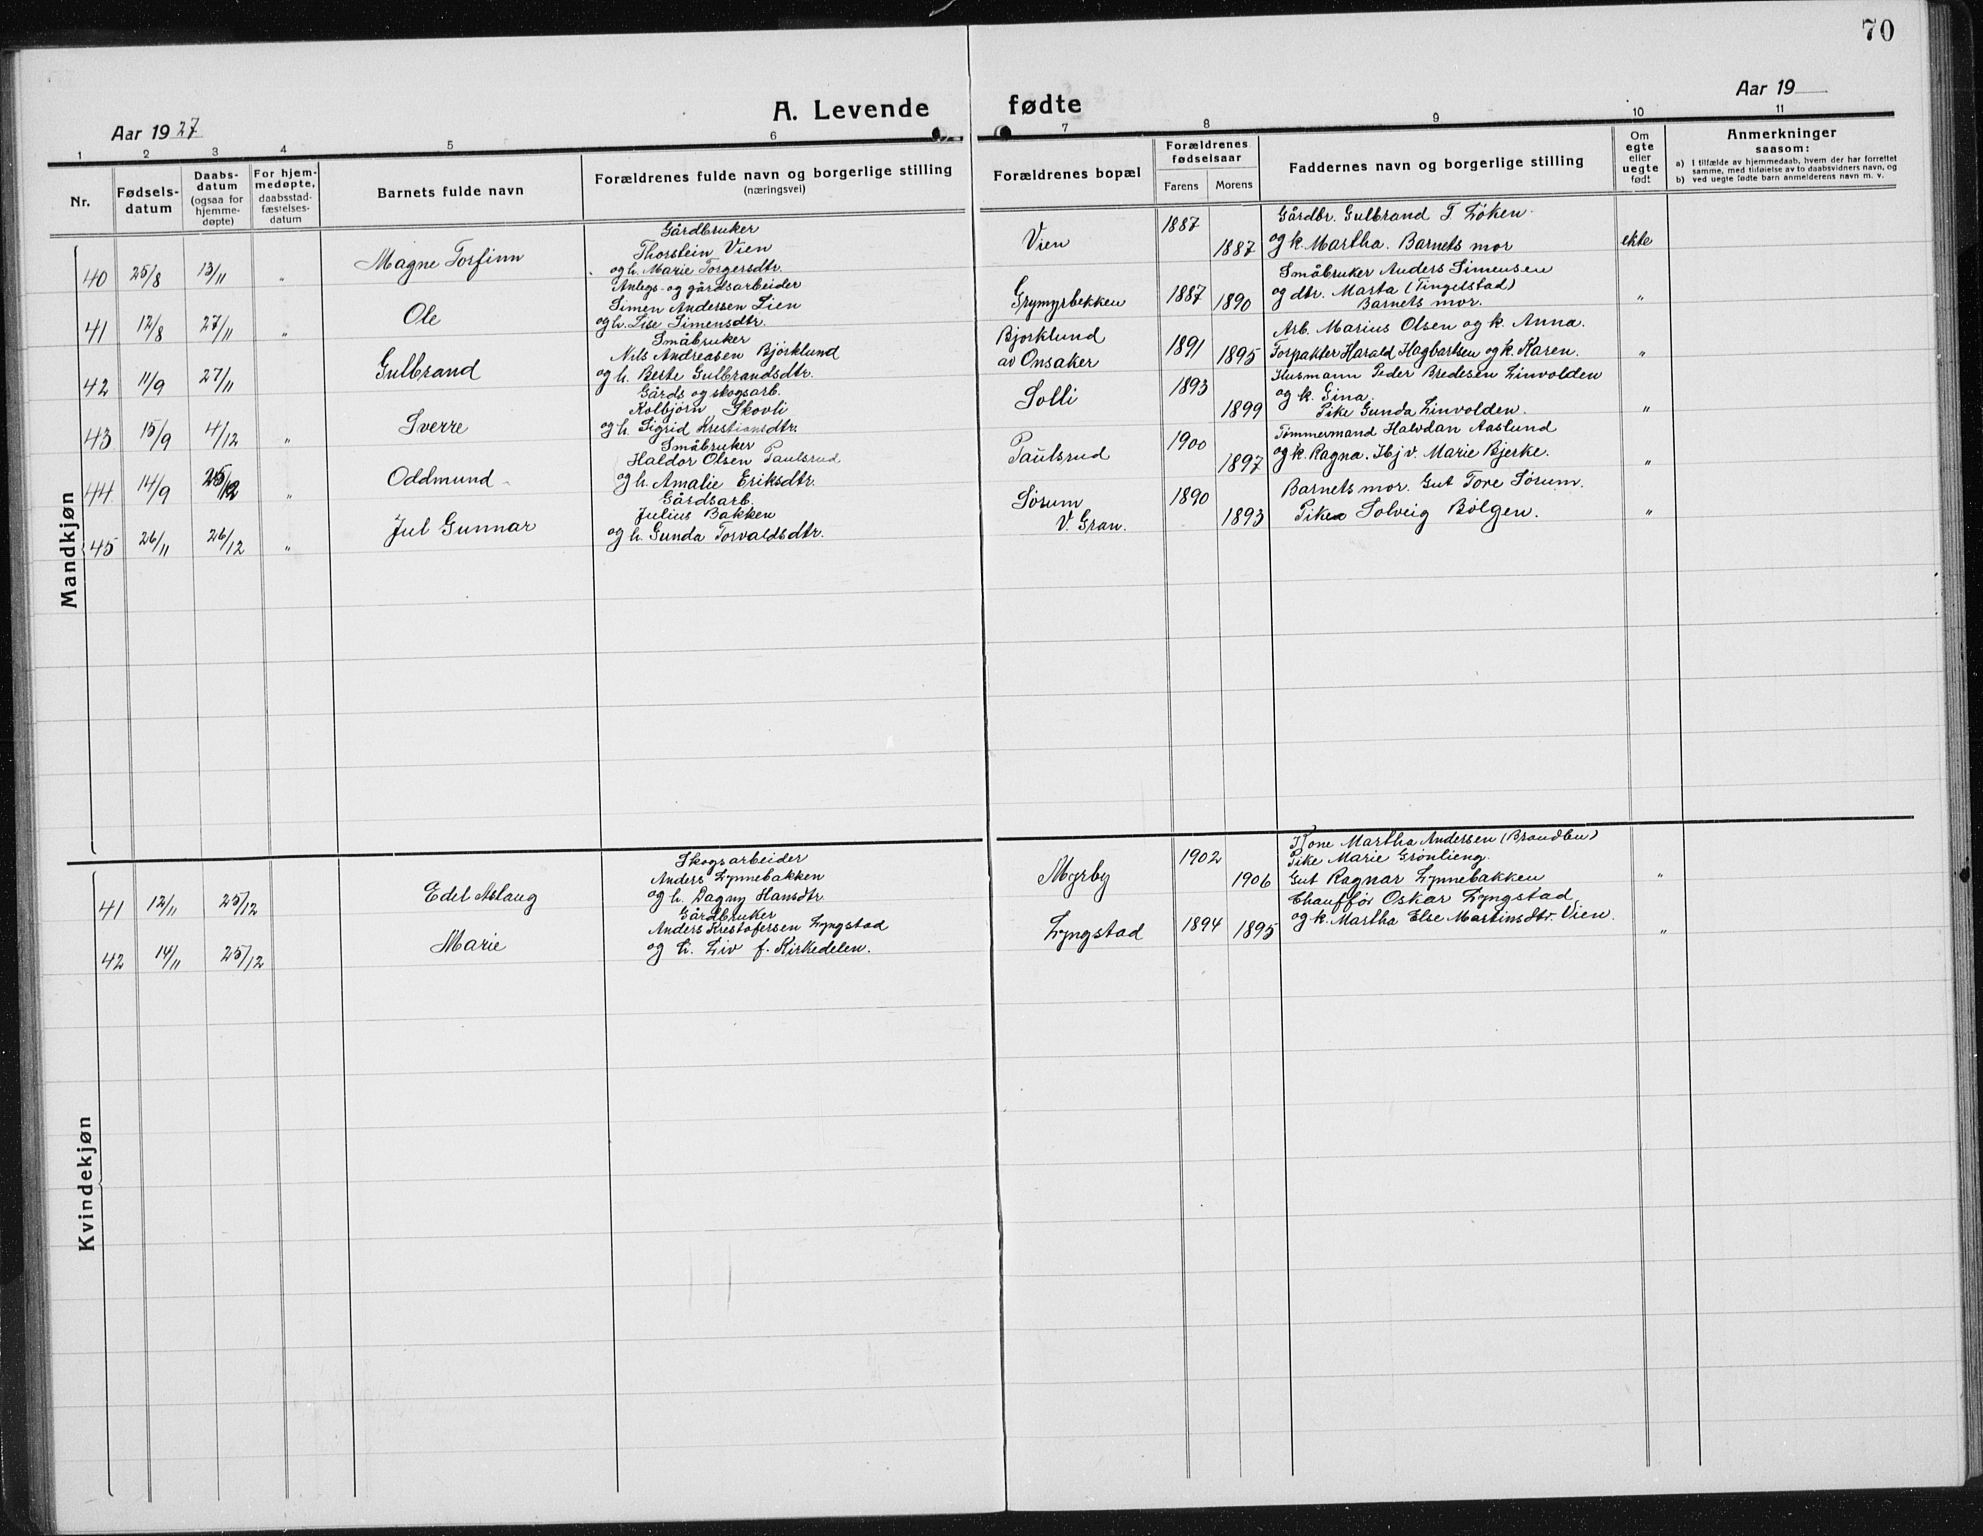 70
Aar 1927
A. Levende fødte
Aar 19
1 2 3 4 5 6 7 8 9 10 11
Nr.
Fødsels-
datum
Daabs-
datum
(ogsaa for
hjemme-
døpte)
For hjem-
medøpte,
daabsstad-
fæstelses-
datum
Barnets fulde navn
Forældrenes fulde navn og borgerlige stilling
(næringsvei)
Forældrenes bopæl
Forældrenes
fødselsaar
Farens Morens
Faddernes navn og borgerlige stilling
Om
egte
eller
uegte
født
Anmerkninger
saasom:
a) I tilfælde av hjemmedaab, hvem der har forrettet
samme, med tilføielse av to daabsvidners navn, og
b) ved uegte fødte barn anmelderens navn m. v.
Mandkjøn
40 25/8 13/11 " Magne Torfinn
Gårdbruker
Thorstein Vien
og h. Marie Torgersdtr.
Vien 1887 1887
Gårdbr. Gulbrand T. Løken
og k. Martha. Barnets mor
ekte
41 12/8 27/11 " Ole
Anlegs- og gårdsarbeider
Simen Andersen Lien
og h. Lise Simensdtr.
Grymyrbekken 1887 1890
Småbruker Anders Simensen
og dtr. Marta (Tingelstad)
Barnets mor.
"
42 11/9 27/11 Gulbrand
Småbruker
Nils Andreasen Bjørklund
og h. Berte Gulbrandsdtr.
Bjørklund
av Onsaker
1891 1895
Arb. Marius Olsen og k. Anna.
Forpakter Harald Hagbartsen og k. Karen.
"
43 15/9 4/12 " Sverre
Gårds og skogsarb.
Kolbjørn Skovli
og h. Sigrid Kristiansdtr.
Solli 1893 1899
Husmann Peder Bredesen Linvolden
og k. Gina.
Pike Gunda Linvolden.
"
44 14/9 25/12 " Oddmund
Småbruker
Haldor Olsen Paulsrud
og h. Amalie Eriksdtr.
Paulsrud 1900 1897
Tømmermand Halvdan Aaslund
og k. Ragna. Hj v. Marie Bjerke.
"
45 26/11 26/12 " Jul Gunnar
Gårdsarb.
Julius Bakken
og h. Gunda Torvaldsdtr.
Sørum
V. Gran.
1890 1893
Barnets mor. Gut Tore Sørum.
Pike Solveig Bølgen.
"
Kvindekjøn
41 12/11 25/12 Edel Aslaug
Skogsarbeider
Anders Lynnebakken
og h. Dagny Hansdtr.
Myrby 1902 1906
Kone Martha Andersen (Brandbu)
Pike Marie Grønlieng.
Gut Ragnar Lynnebakken
"
42 14/11 25/12 Marie
Gårdbruker
Anders Kristofersen Lyngstad
og h. Liv f. Kirkedelen.
Lyngstad 1894 1895
Chauffør Oskar Lyngstad,
og k. Martha Else Martinsdtr. Vien.
"